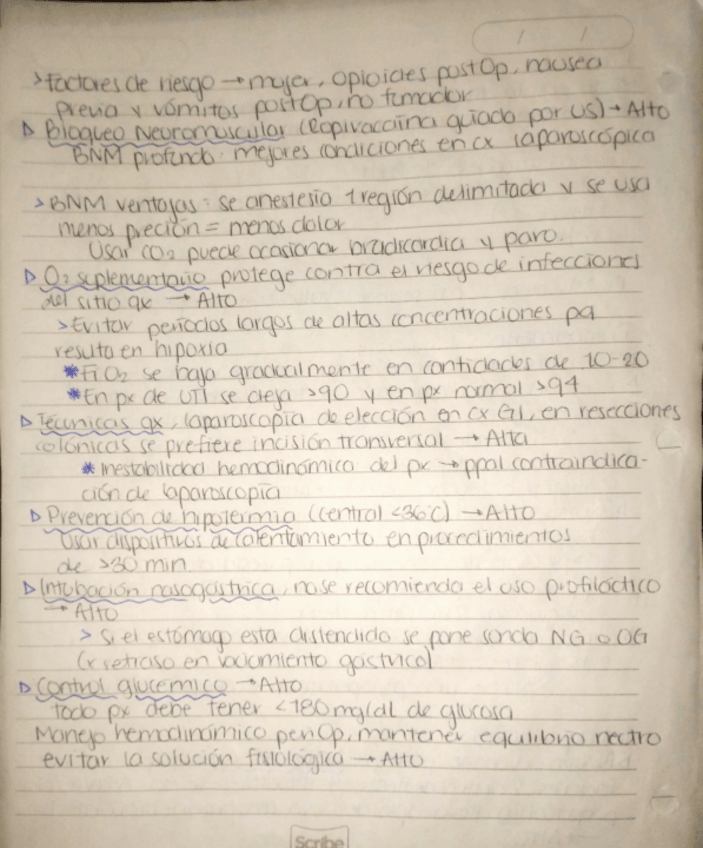 > Factores de riesgo → mujer, opioides postOp, nausea
previa y vómitos postOp, no fumador
▷ Bloqueo Neuromuscular (Ropivacaína guiada por US) → Alto
BNM profundo: mejores condiciones en cx laparoscópica
> BNM ventajas: se anestesia 1 región delimitada y se usa
menos preción = menos dolor
Usar CO2 puede ocasionar bradicardia y paro.
▷ O2 suplementario protege contra el riesgo de infecciones
del sitio qx → Alto
> Evitar periodos largos de altas concentraciones pq
resulta en hipoxia
* FiO2 se baja gradualmente en cantidades de 10-20
* En px de UTI se deja >90 y en px normal >94
▷ Técnicas qx, laparoscopía de elección en cx GI, en resecciones
colónicas se prefiere incisión transversal → Alta
* Inestabilidad hemodinámica del px → ppal contraindica-
ción de laparoscopía
▷ Prevención de hipotermia (central <36°C) → Alto
Usar dispositivos de calentamiento en procedimientos
de >30 min
▷ Intubación nasogástrica, no se recomienda el uso profiláctico
→ Alto
> Si el estómago esta distendido se pone sonda NG o OG
(x retraso en vaciamiento gástrico)
▷ Control glucémico → Alto
Todo px debe tener <180 mg/dl de glucosa
Manejo hemodinámico periOp, mantener equilibrio neutro
evitar la solución fisiológica → Alto
Scribe